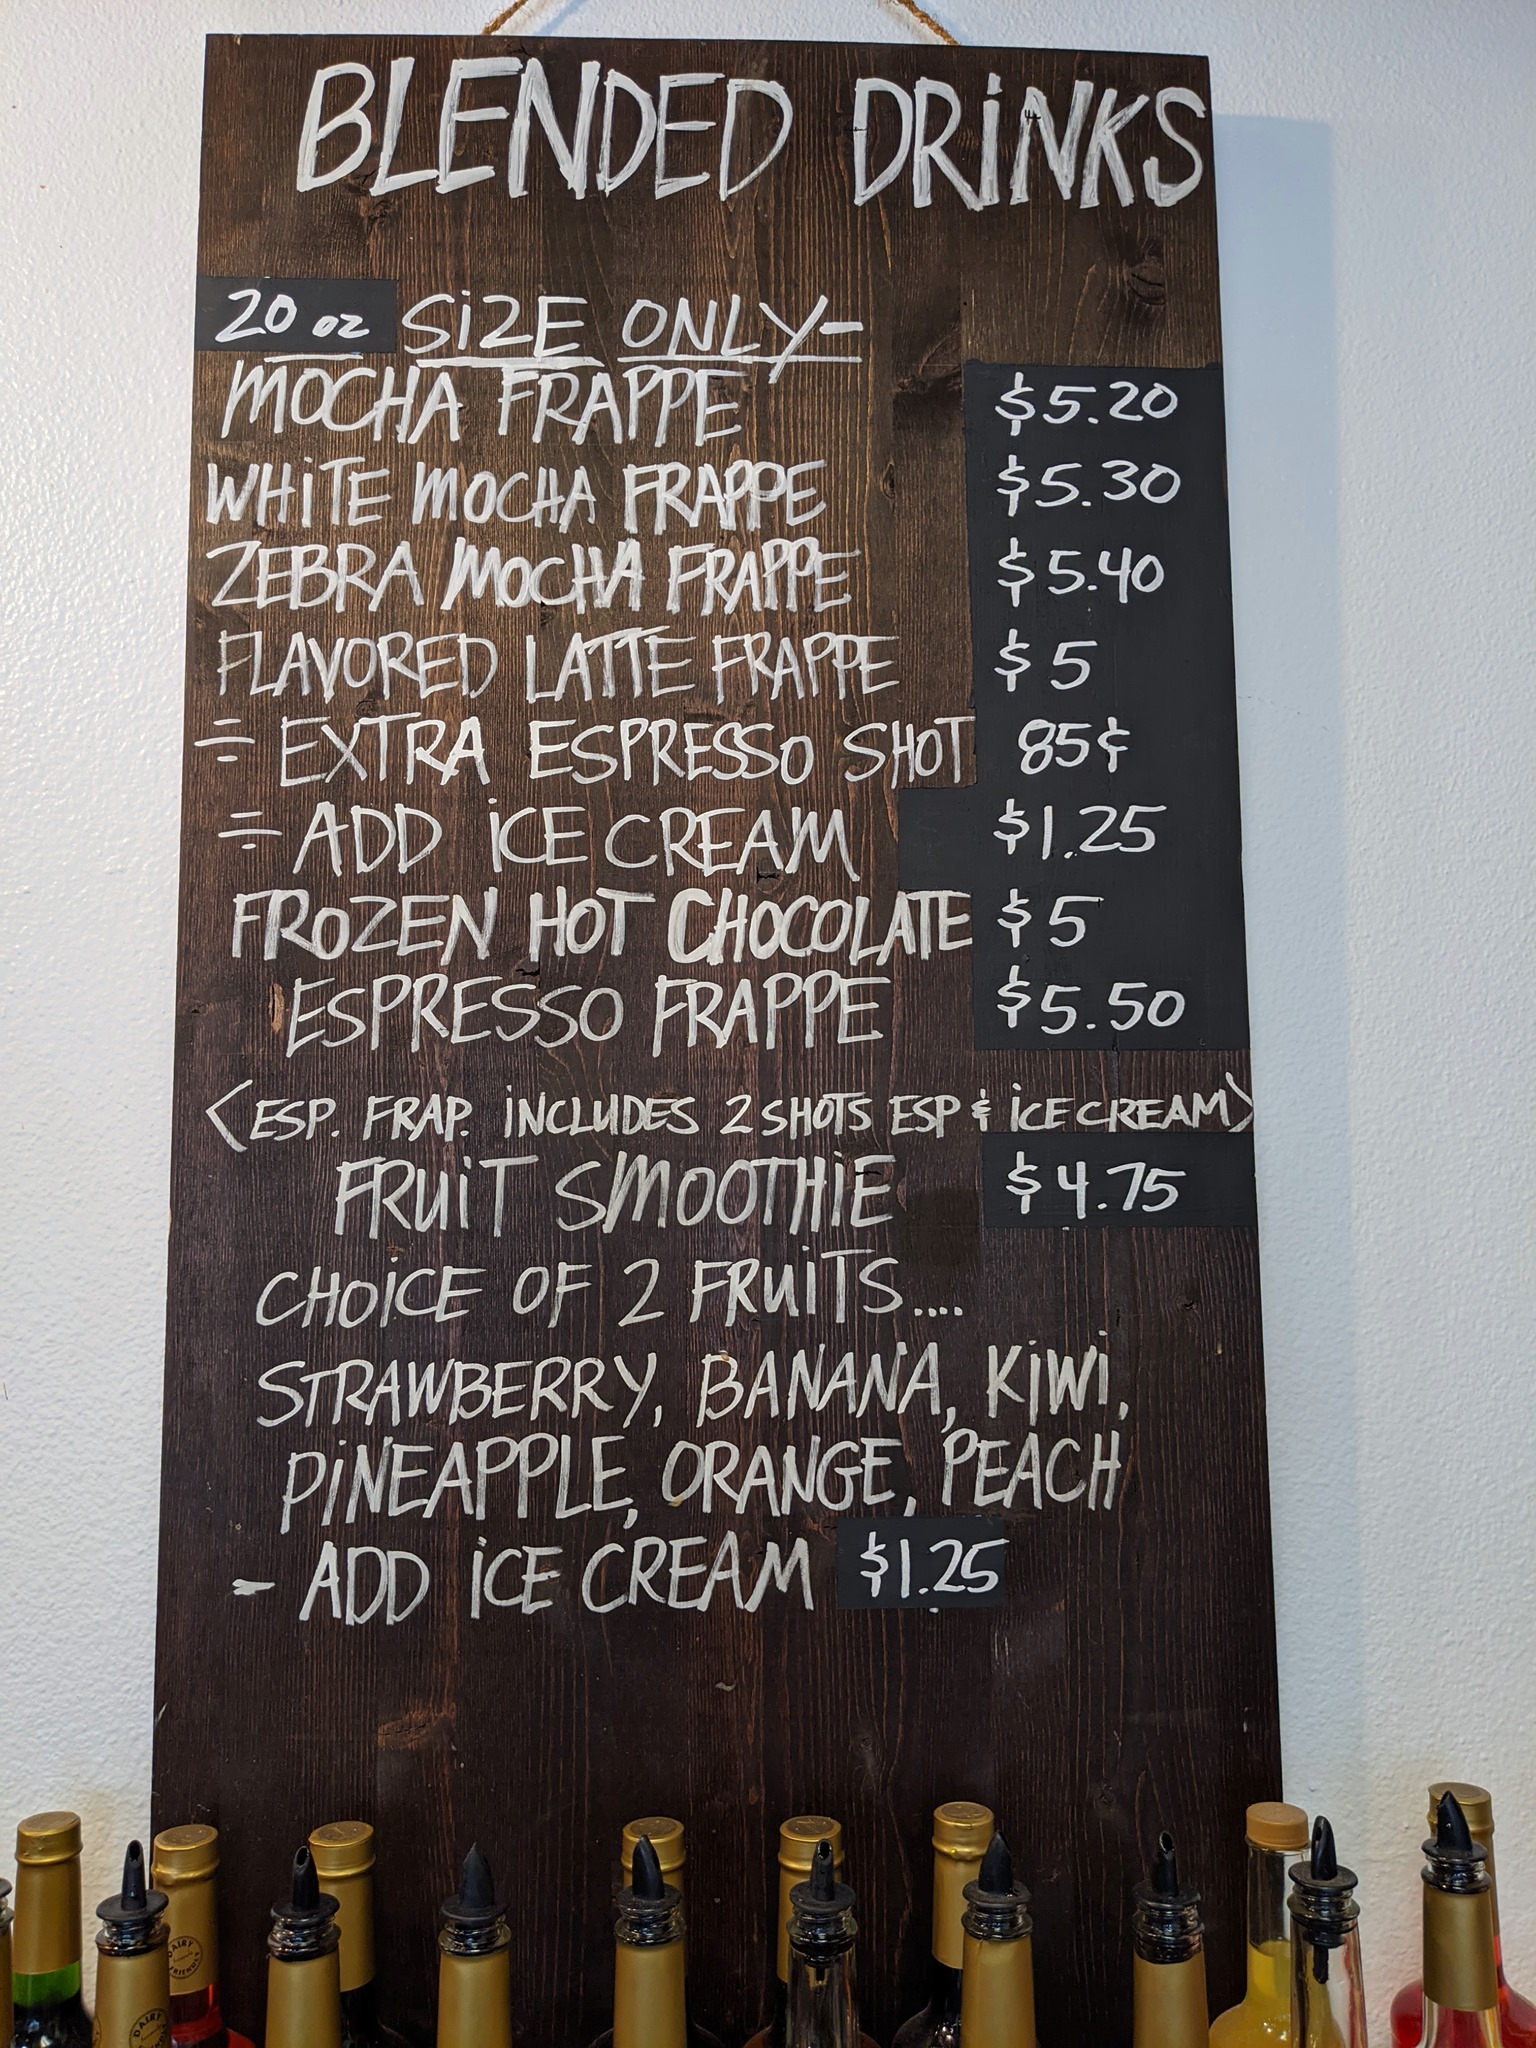 BLENDED DRiNKS
20 oz SiZE ONLY-
MOCHA FRAPPE $5.20
WHiTE MOCHA FRAPPE $5.30
ZEBRA MOCHA FRAPPE $5.40
FLAVORED LATTE FRAPPE $5
- EXTRA ESPRESSO SHOT 85¢
- ADD iCE CREAM $1.25
FROZEN HOT CHOCOLATE $5
ESPRESSO FRAPPE $5.50
<ESP. FRAP. iNCLUDES 2 SHOTS ESP & iCE CREAM>
FRUiT SMOOTHiE $4.75
CHOiCE OF 2 FRUiTS....
STRAWBERRY, BANANA, KiWi,
PiNEAPPLE, ORANGE, PEACH
- ADD iCE CREAM $1.25
DAIRY
FRIENDLY
DAIRY